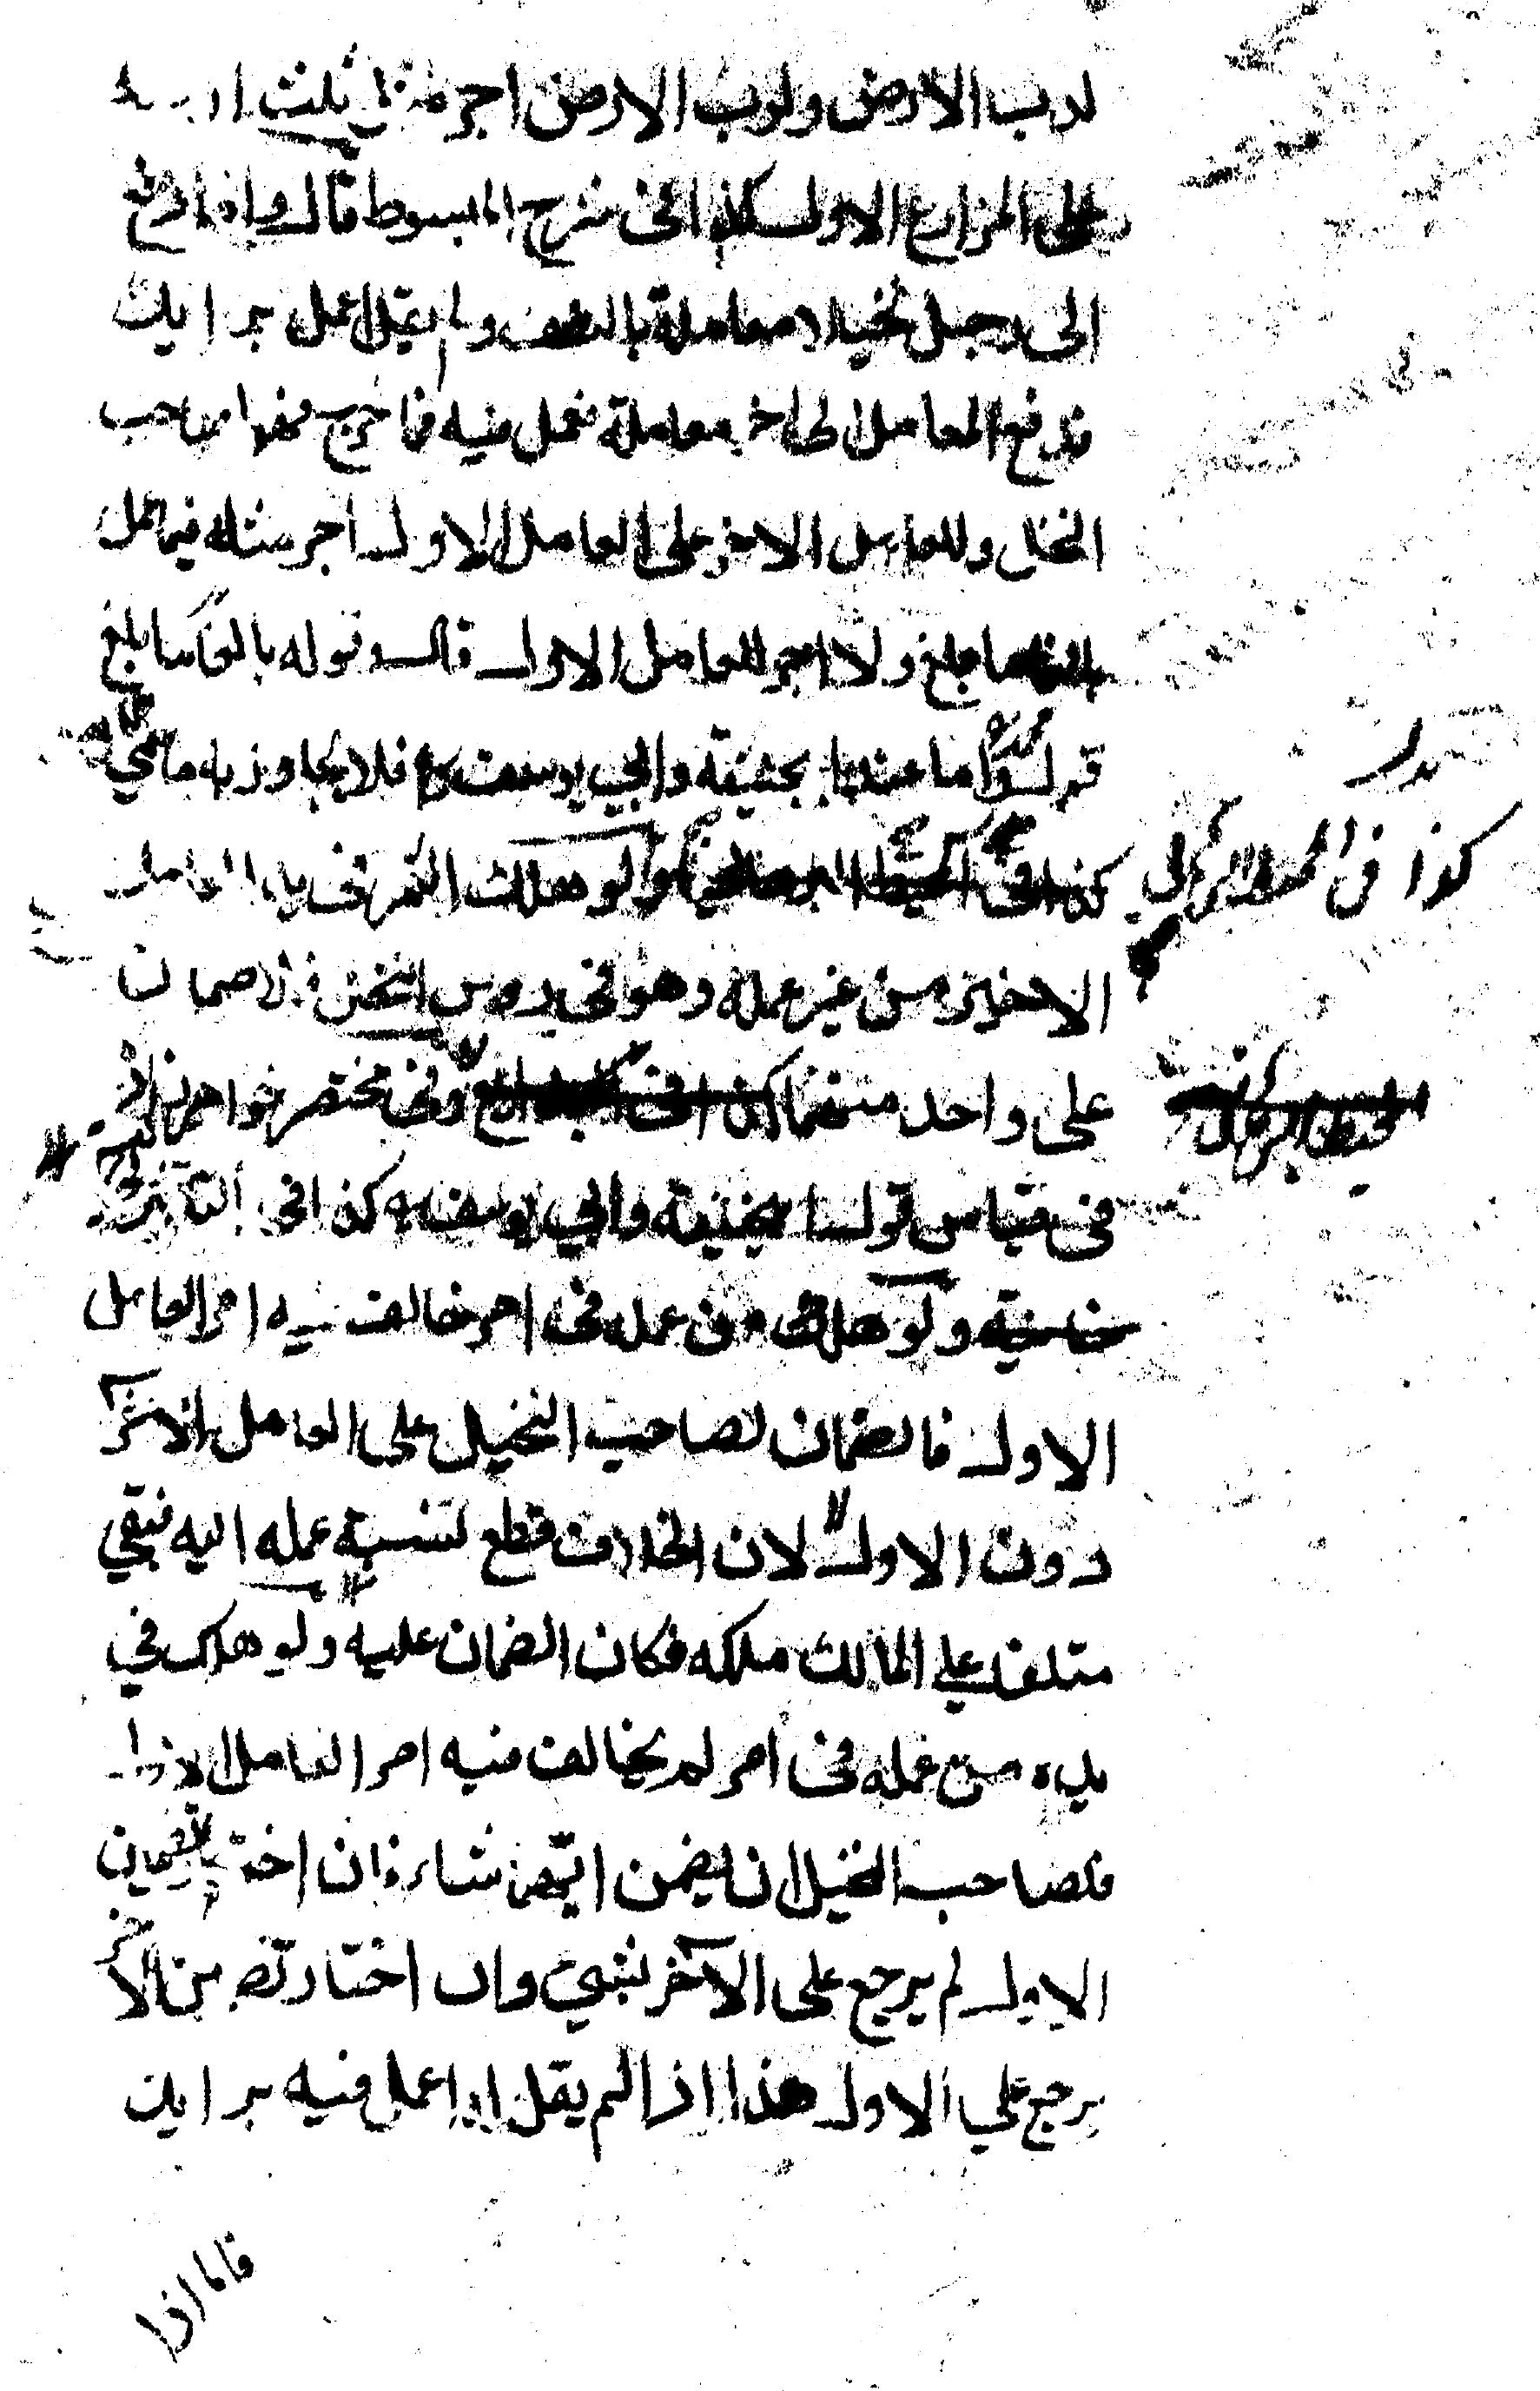 لرب الارض ولرب الارض اجر مثل ثلث ارضه
على المزارع الاول كذا فى شرح المبسوط قال واذا دفع
الى رجل نخيلا معاملة بالنصف ولم يقل اعمل برايك
فدفع العامل الى اخر معاملة فعمل فيه فما خرج فهو لصاحب
النخل وللعامل الاخر على العامل الاول اجر مثله فيما عمل
بالغا ما بلغ ولا اجر للعامل الاول قال وقوله بالغا ما بلغ
قول محمد واما عند ابيحنيفة وابي يوسف فلا يجاوز به ما سمي
كذا فى المحيط البرهاني ولو هلك الثمر فى يد العامل
الاخير من غير عمله وهو فى رؤس النخل فلا ضمان
على واحد منهما كذا فى البدائع وفى مختصر خواهر زاده
فى قياس قول ابيحنيفة وابي يوسف كذا فى التاتر
خانية ولو هلك من عمله فى امر خالف فيه امر العامل
الاول فالضمان لصاحب النخيل على العامل الاخر
دون الاول لان الخلاف قطع نسبة عمله اليه فبقي
متلفا على المالك ملكه فكان الضمان عليه ولو هلك في
يده من عمله فى امر لم يخالف فيه امر العامل الاول
فلصاحب النخيل ان يضمن ايهما شاء فان اختار تضمين
الاول لم يرجع على الآخر بشيء وان اختار تضمين الآخر
يرجع علي الاول هذا اذا لم يقل له اعمل فيه برايك
فاما اذا
كذا فى المحيط البرهاني